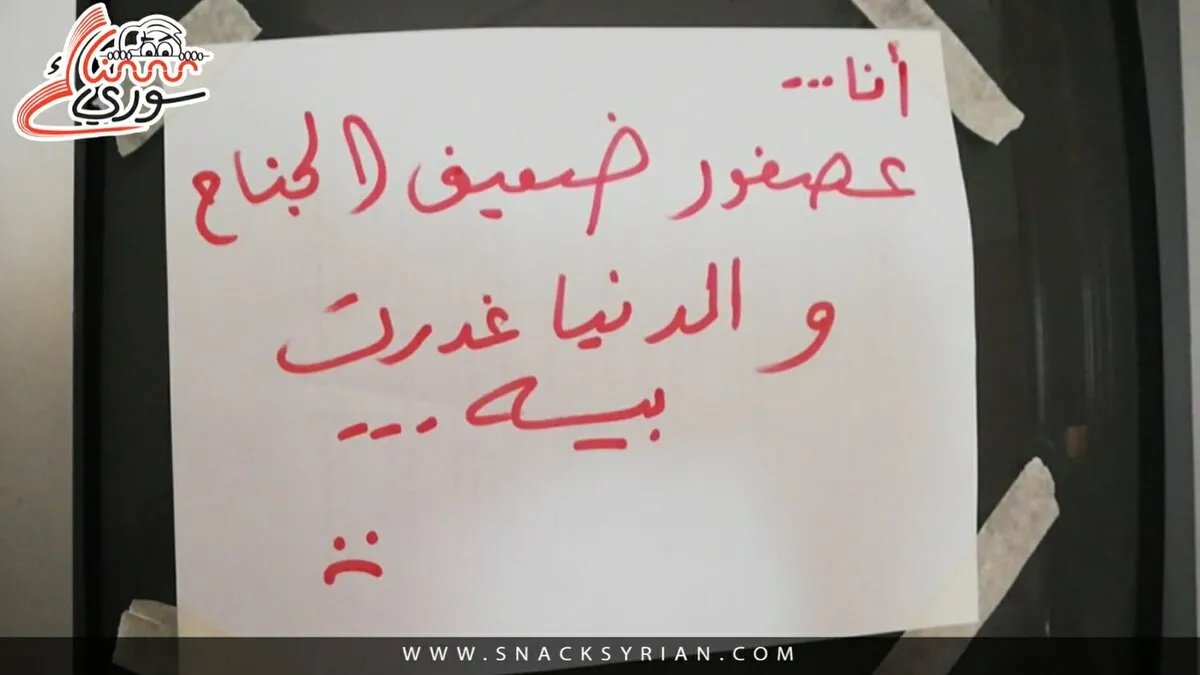 سناك
سوري
أنا...
عصفور ضعيف الجناح
و الدنيا غدرت
بيــه...
WWW.SNACKSYRIAN.COM